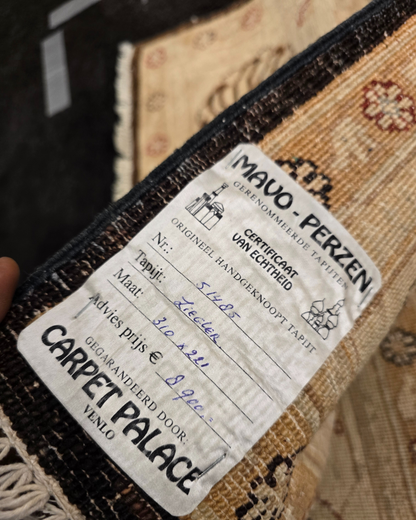 MAVO-PERZEN
GERENOMMEERDE TAPIJTEN
CERTIFICAAT
VAN ECHTHEID
ORIGINEEL HANDGEKNOOPT TAPIJT
Nr.: 51485
Tapijt: Ziegler
Maat: 310 x 221
Advies prijs € 8900.-
GEGARANDEERD DOOR:
CARPET PALACE
VENLO